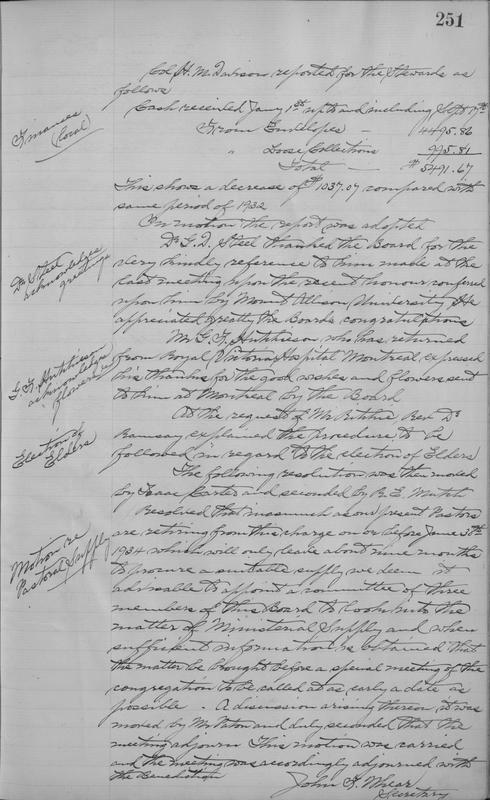 251
Col. H. M. Davison reported for the Stewards as
follows
Finances
(local)
Cash received Jany 1st up to and including Sept 17th
From Envelopes — 4495.86
" Loose Collections 995.81
Total — $5491.67
This shows a decrease of $1037.07 compared with
same period of 1932
On motion the report was adopted
Dr Steel
acknowledges
greetings
Dr G. D. Steel thanked the Board for the
very kindly reference to him made at the
last meeting upon the recent honour conferred
upon him by Mount Allison University. He
appreciated greatly the Boards congratulations
G. F. Hutchison
acknowledges
flowers
Mr G. F. Hutchison, who has returned
from Royal Victoria Hospital Montreal, expressed
his thanks for the good wishes and flowers sent
to him at Montreal by the Board
Election of
Elders
At the request of Mr Ritchie Rev. Dr
Ramsay explained the procedure to be
followed in regard to the election of Elders
The following resolution was then moved
by Isaac Carter and seconded by R. E. Mutch
Motion re
Pastoral Supply
Resolved that inasmuch as our present Pastors
are retiring from this charge on or before June 30th
1934 which will only leave about nine months
to procure a suitable supply we deem it
advisable to appoint a committee of three
members of this Board to look into the
matter of Ministerial Supply and when
sufficient information is obtained that
the matter be brought before a special meeting of the
congregation to be called at as early a date as
possible. A discussion arising thereon it was
moved by Mr Paton and duly seconded that the
meeting adjourn. This motion was carried
and the meeting was accordingly adjourned with
the Benediction
John F. Whear
Secretary